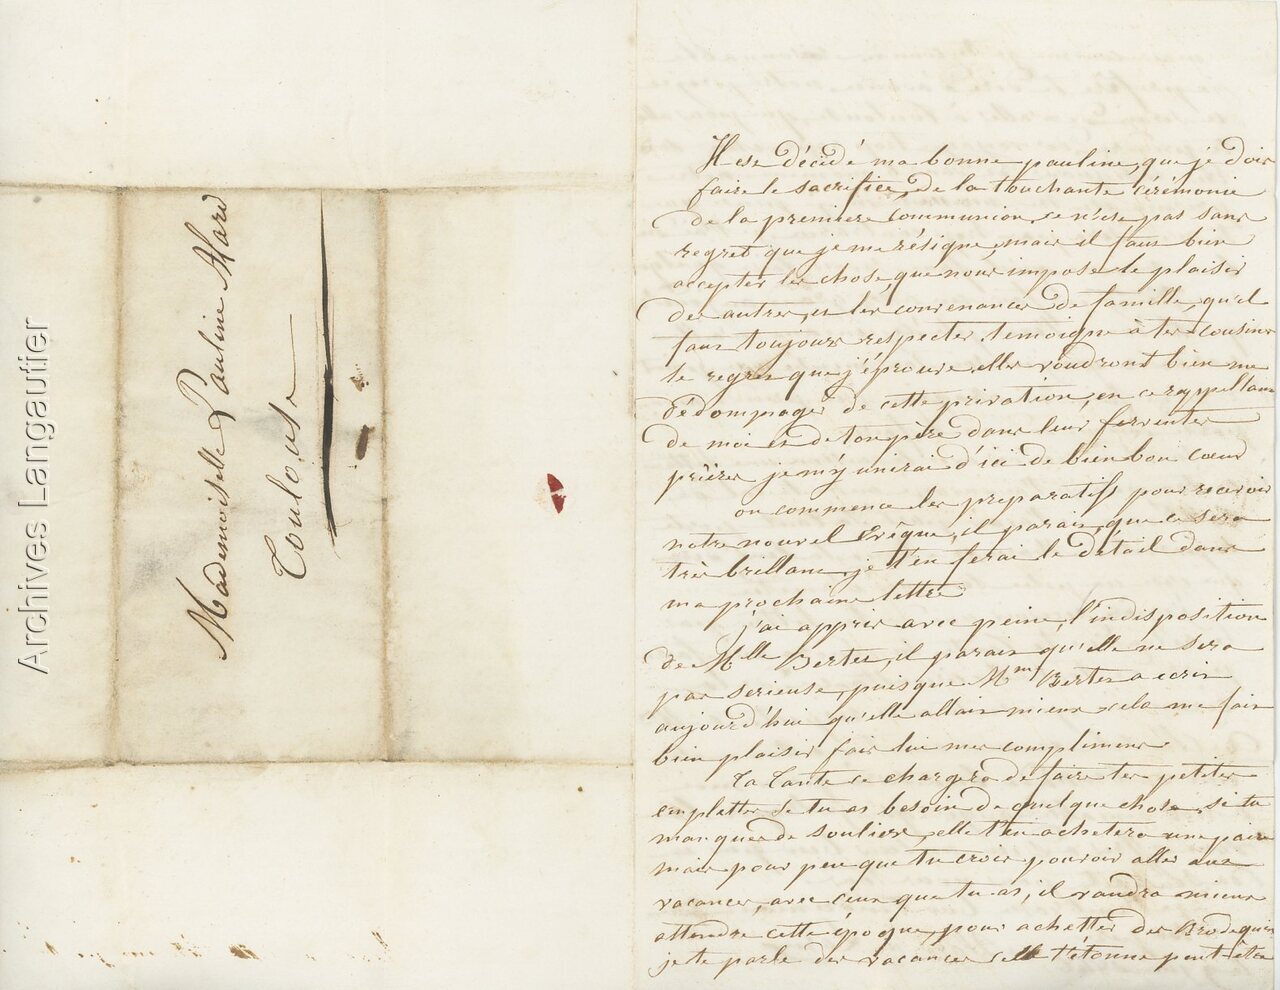 Archives Langautier
Mademoiselle Pauline Mard
Toulouse
Il est décidé ma bonne pauline, que je dois
faire le sacrifice, de la touchante cérémonie
de la premiere communion, ce n'est pas sans
regret que je me résigne, mais il faut bien
accepter les choses, que nous impose le plaisir
des autres, et les convenances de famille, qu'il
faut toujours respecter, temoigne à tes cousines
le regret que j'éprouve, elles voudront bien me
dédompager de cette privation, en ce rappellant
de moi et de ton père dans leur ferventes
prières, je m'y unirai d'ici de bien bon coeur
on commence les preparatifs pour recevoir
notre nouvel Evêque, il parait, que ce sera
très brillant, je t'en ferai le détail dans
ma prochaine lettre
j'ai appris avec peine, l'indisposition
de Mlle Bertes, il parait qu'elle ne sera
pas serieuse, puisque Mme Bertes a ecrit
aujourd'hui qu'elle allait mieux, cela me fait
bien plaisir fais lui mes compliments
ta tante se chargera de faire tes petites
emplettes si tu as besoin de quelque chose, si tu
manques de souliers, elle t'en achetera une paire
mais pour peu que tu crois pouvoir aller aux
vacances, avec ceux que tu as, il vaudra mieux
attendre cette époque, pour achetter des Brodequins
je te parle des vacances cela t'étonne peut-être